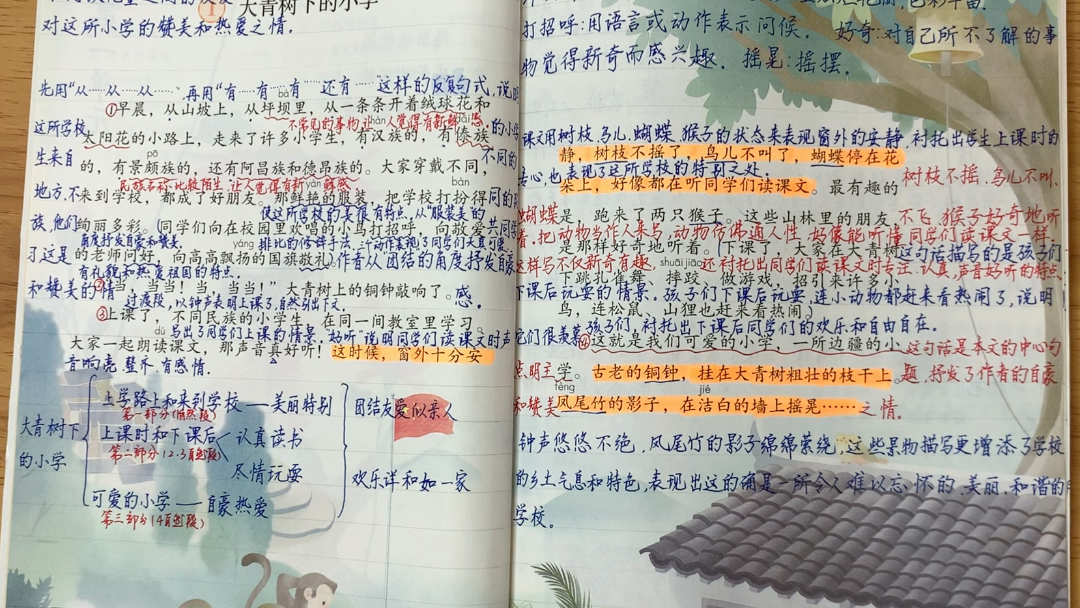 ① 大青树下的小学
对这所小学的赞美和热爱之情。
先用“从……从……从……”,再用“有……有……有……还有……”这样的反复句式,说明
①早晨,从山坡上,从坪坝里,从一条条开着绒球花和
这所学校
不常见的事物,让人觉得有新鲜感。
太阳花的小路上,走来了许多小学生,有汉族的,有傣族
的小学
生来自
的,有景颇族的,还有阿昌族和德昂族的。大家穿戴不同,
不同的
民族名称比较陌生,让人觉得有新鲜感
地方、不
来到学校,都成了好朋友。那鲜艳的服装,把学校打扮得
同的民
使这所学校的美很有特点,从“服装美”的
族,他们
绚丽多彩。同学们向在校园里欢唱的小鸟打招呼,向敬爱
共同
角度抒发自豪和赞美。
排比的修辞手法,三个动作表现了同学们天真可爱、
了这是
的老师问好,向高高飘扬的国旗敬礼。
作者从团结的角度抒发自豪
有礼貌和热爱祖国的特点。
和赞美的情
②“当,当当!当,当当!”大青树上的铜钟敲响了。
感。
过渡段,以钟声表明上课了,自然引出下文
③上课了,不同民族的小学生,在同一间教室里学习。
写出了同学们上课的情景,“好听”说明同学们读课文时声
大家一起朗读课文,那声音真好听!这时候,窗外十分安
音响亮、整齐、有感情。
大青树下
的小学
上学路上和来到学校——美丽特别
第一部分(1自然段)
上课时和下课后
第二部分(2.3自然段)
认真读书
尽情玩耍
可爱的小学——自豪热爱
第三部分(4自然段)
团结友爱似亲人
欢乐详和如一家
打招呼:用语言或动作表示问候。 好奇:对自己所不了解的事
物觉得新奇而感兴趣。 摇晃:摇摆。
课文用树枝、鸟儿、蝴蝶、猴子的状态来表现窗外的安静,衬托出学生上课时的
静,树枝不摇了,鸟儿不叫了,蝴蝶停在花
专心,也表现了这所学校的特别之处。
朵上,好像都在听同学们读课文。最有趣的
树枝不摇、鸟儿不叫、
蝴蝶
是,跑来了两只猴子。这些山林里的朋友,
不飞,猴子好奇地听
着。把动物当作人来写,动物仿佛通人性,好像能听懂同学们读课文一样,
是那样好奇地听着。(下课了,大家在大青树
这句话描写的是孩子们
这样写不仅新奇有趣,还衬托出同学们读课文时专注、认真,声音好听的特点。
下跳孔雀舞、摔跤、做游戏,招引来许多小
下课后玩耍的情景。孩子们下课后玩耍,连小动物都赶来看热闹了,说明!
鸟,连松鼠、山狸也赶来看热闹)
它们很羡慕孩子们,衬托出下课后同学们的欢乐和自由自在。
④这就是我们可爱的小学,一所边疆的小
这句话是本文的中心句
点明主
学。古老的铜钟,挂在大青树粗壮的枝干上。
题,抒发了作者的自豪
和赞美
凤尾竹的影子,在洁白的墙上摇晃……
之情。
钟声悠悠不绝,凤尾竹的影子绵绵萦绕,这些景物描写更增添了学校
的乡土气息和特色,表现出这的确是一所令人难以忘怀的、美丽、和谐的
学校。